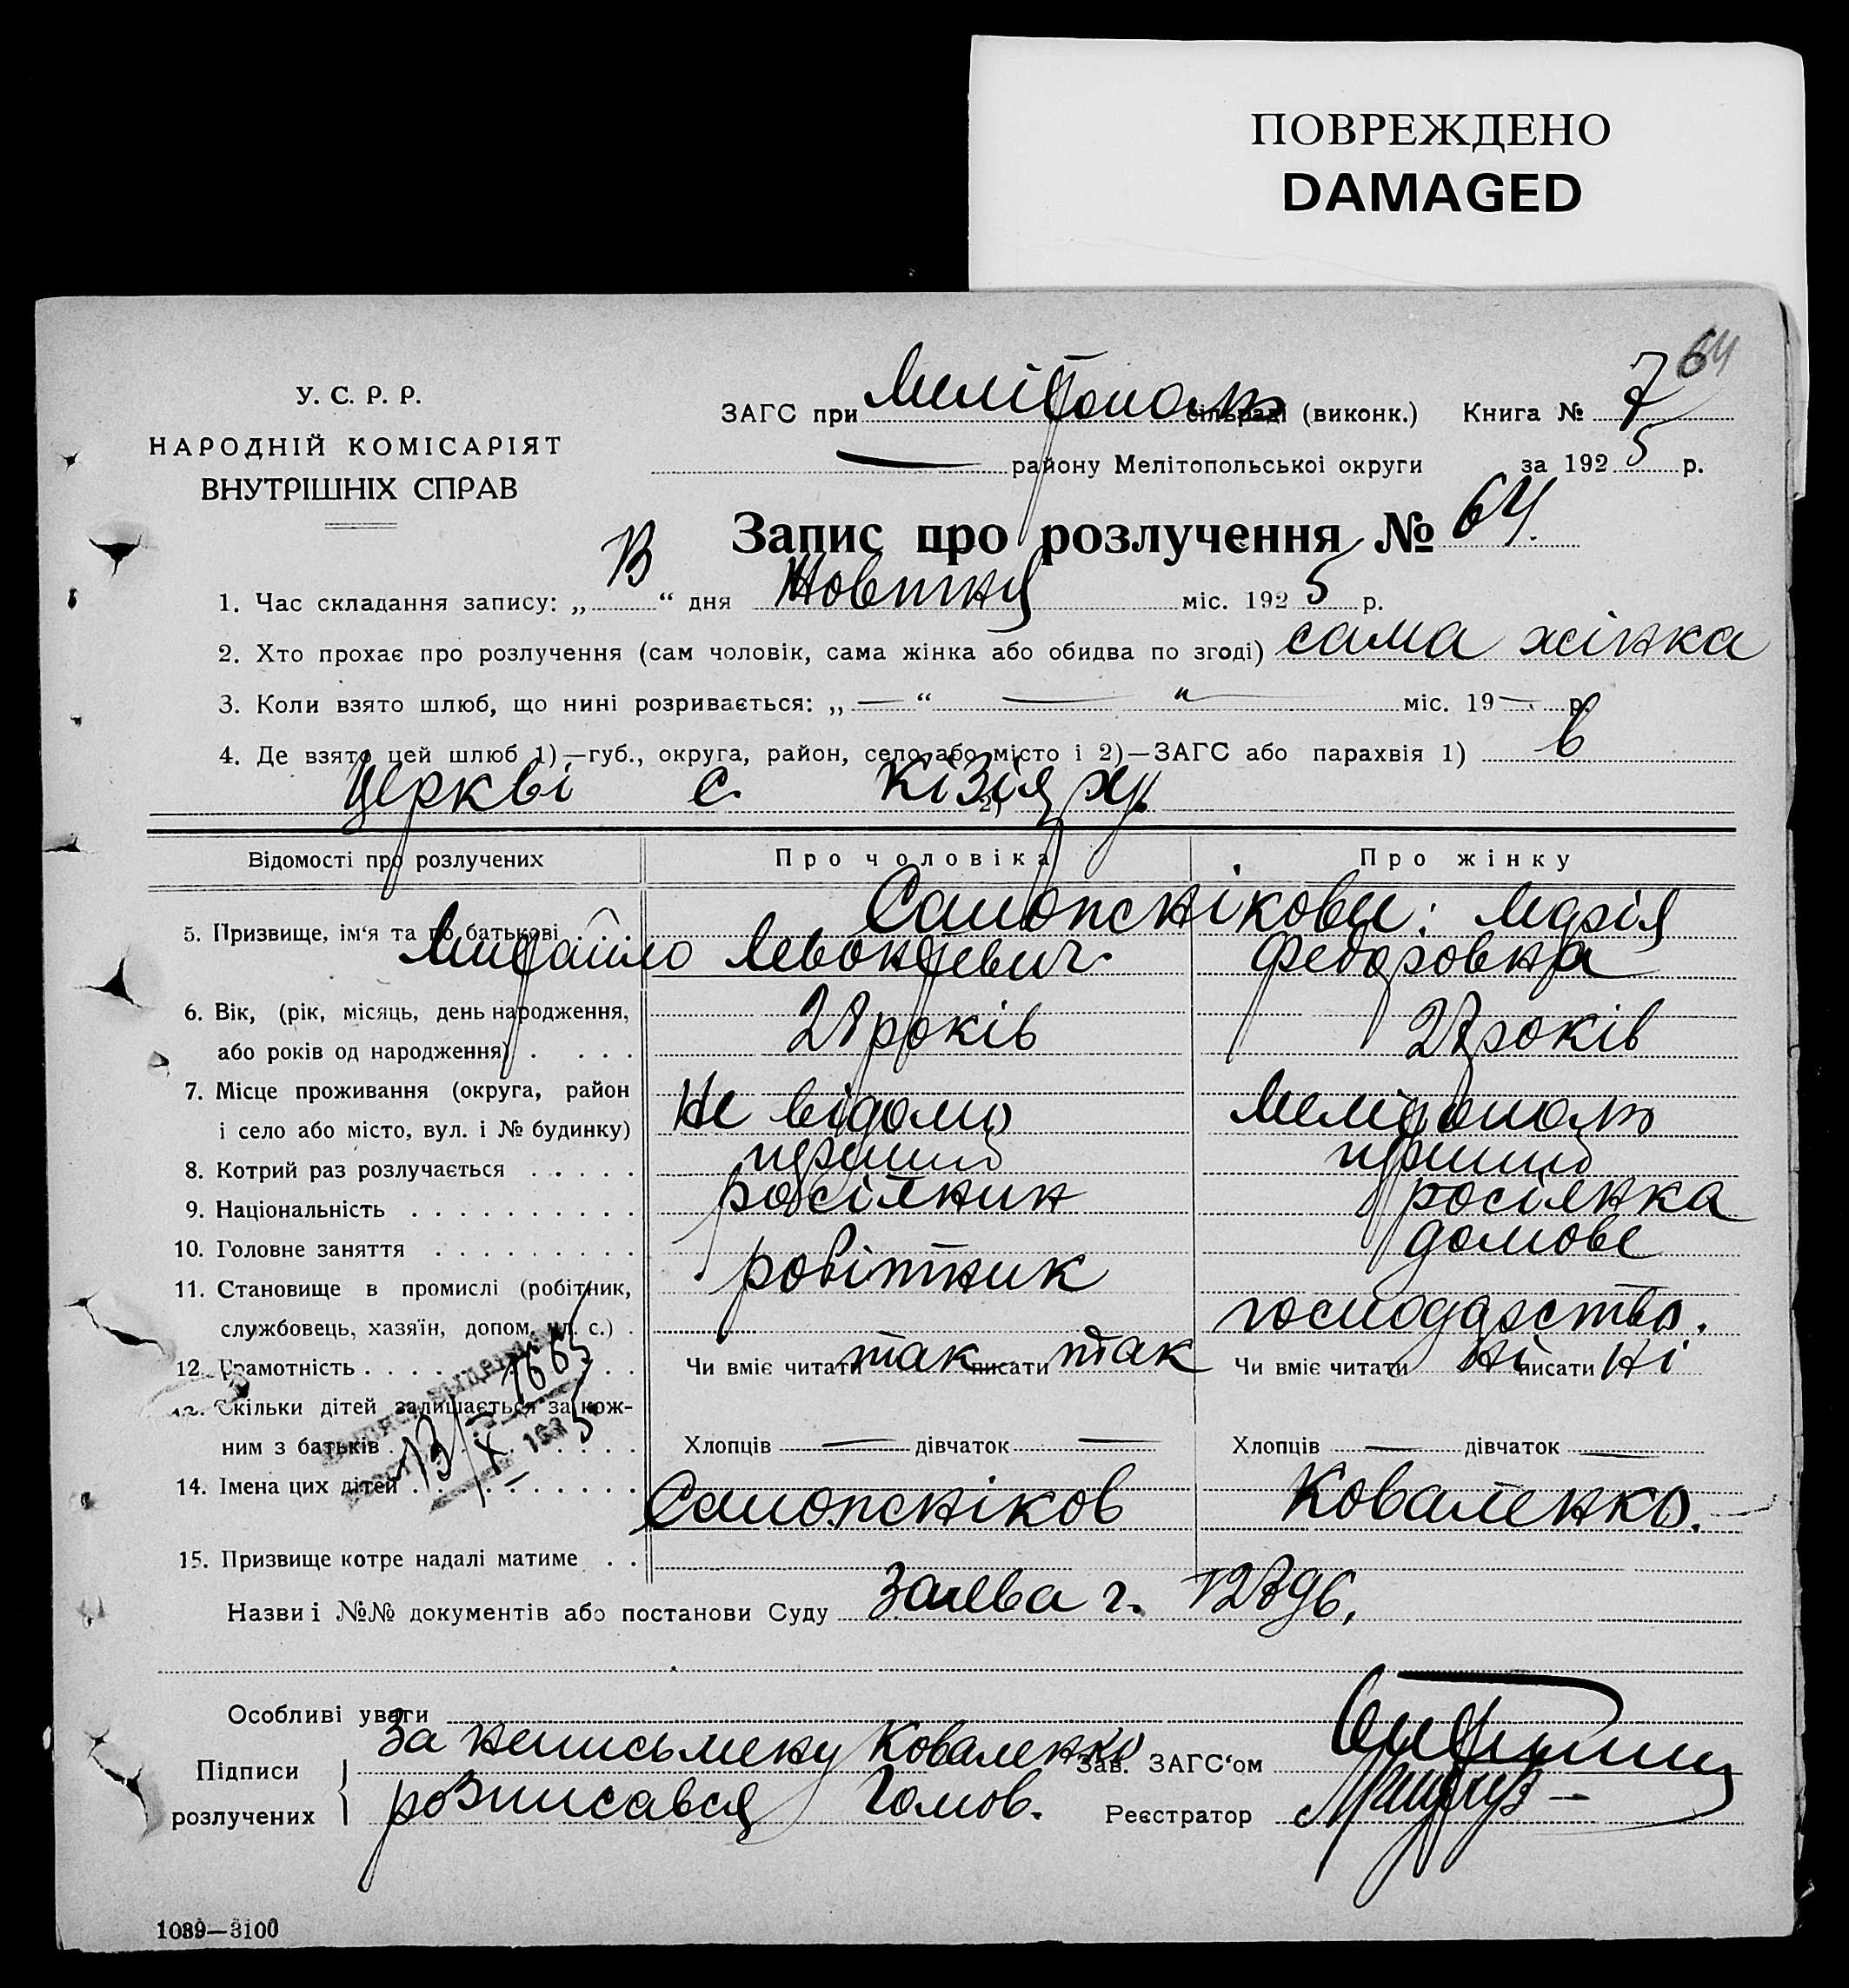 ПОВРЕЖДЕНО
DAMAGED
64
У. С. Р. Р.
НАРОДНІЙ КОМІСАРІЯТ
ВНУТРІШНІХ СПРАВ
ЗАГС при Мелітополь сільраді (виконк.) Книга № 7
— району Мелітопольської округи за 1925 р.
Запис про розлучення № 64.
1. Час складання запису: „13“ дня Жовтня міс. 1925 р.
2. Хто прохає про розлучення (сам чоловік, сама жінка або обидва по згоді) сама жінка
3. Коли взято шлюб, що нині розривається: „—“ — " міс. 19— р.
4. Де взято цей шлюб 1)—губ., округа, район, село або місто і 2)—ЗАГС або парахвія 1) в
церкві с. Кізіяр 2)
Відомості про розлучених Про чоловіка Про жінку
5. Призвище, ім'я та по батькові Марія
Михайло Федоровна
6. Вік, (рік, місяць, день народження, 28 років 27 років
або років од народження)
7. Місце проживання (округа, район Не відомо Мелітополь
і село або місто, вул. і № будинку)
8. Котрий раз розлучається перший перший
9. Національність росіянин росіянка
10. Головне заняття домове
11. Становище в промислі (робітник, робітник господарство.
службовець, хазяїн, допом. чл. с.)
12. Грамотність Чи вміє читати так писати так Чи вміє читати ні писати ні
13. Скільки дітей залишається за кож-
ним з батьків Хлопців — дівчаток — Хлопців — дівчаток —
14. Імена цих дітей
Коваленко.
15. Призвище котре надалі матиме
Назви і №№ документів або постанови Суду
Особливі уваги
За неписьмену Коваленко Зав. ЗАГС'ом
Підписи
розлучених розписався Реєстратор
1089—3100